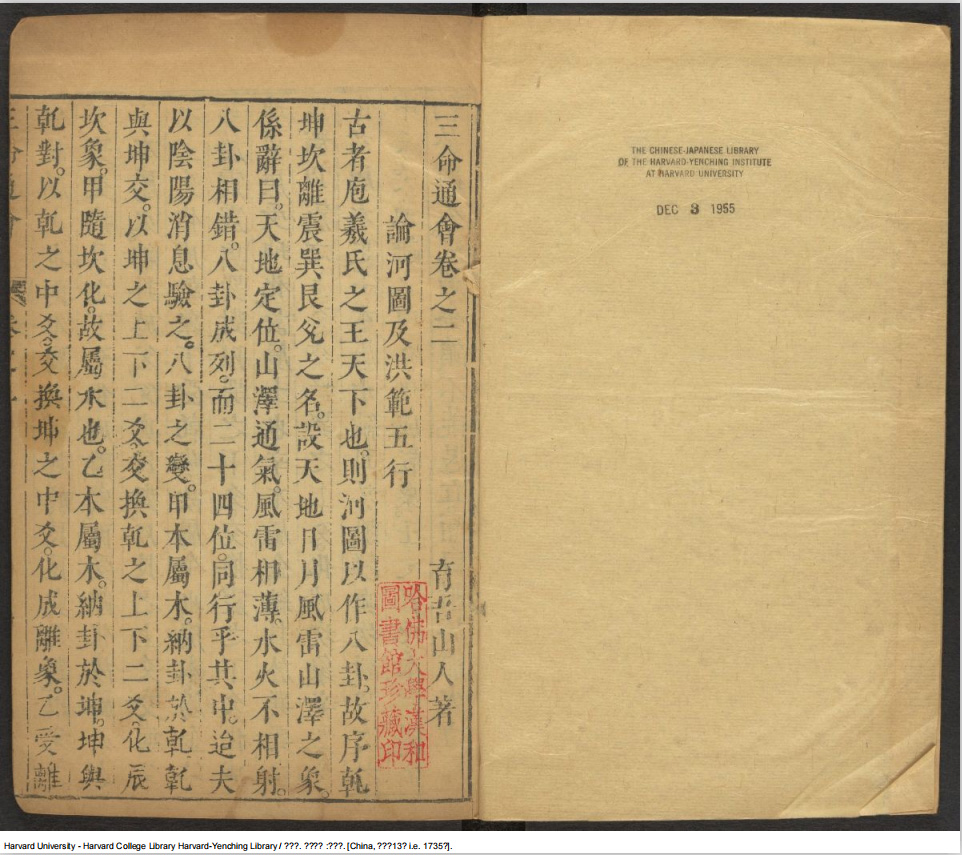 三命通會卷之二 育吾山人著
論河圖及洪範五行
古者庖羲氏之王天下也。則河圖以作八卦。故序乹
坤坎離震巽艮兊之名。設天地日月風雷山澤之象。
係辭曰。天地定位。山澤通氣。風雷相薄。水火不相射。
八卦相錯。八卦成列。而二十四位。同行乎其中。迨夫
以陰陽消息驗之。八卦之變。甲本屬木。納卦於乹乹
與坤交。以坤之上下二爻。交換乹之上下二爻。化辰
坎象。甲隨坎化。故屬水也。乙本屬木。納卦於坤。坤與
乹對。以乹之中爻。交換坤之中爻。化成離象。乙受離
哈佛大學漢和
圖書館珍藏印
THE CHINESE-JAPANESE LIBRARY
OF THE HARVARD-YENCHING INSTITUTE
AT HARVARD UNIVERSITY
DEC 3 1955
Harvard University - Harvard College Library Harvard-Yenching Library / ???. ???? :???. [China, ???13? i.e. 1735?].